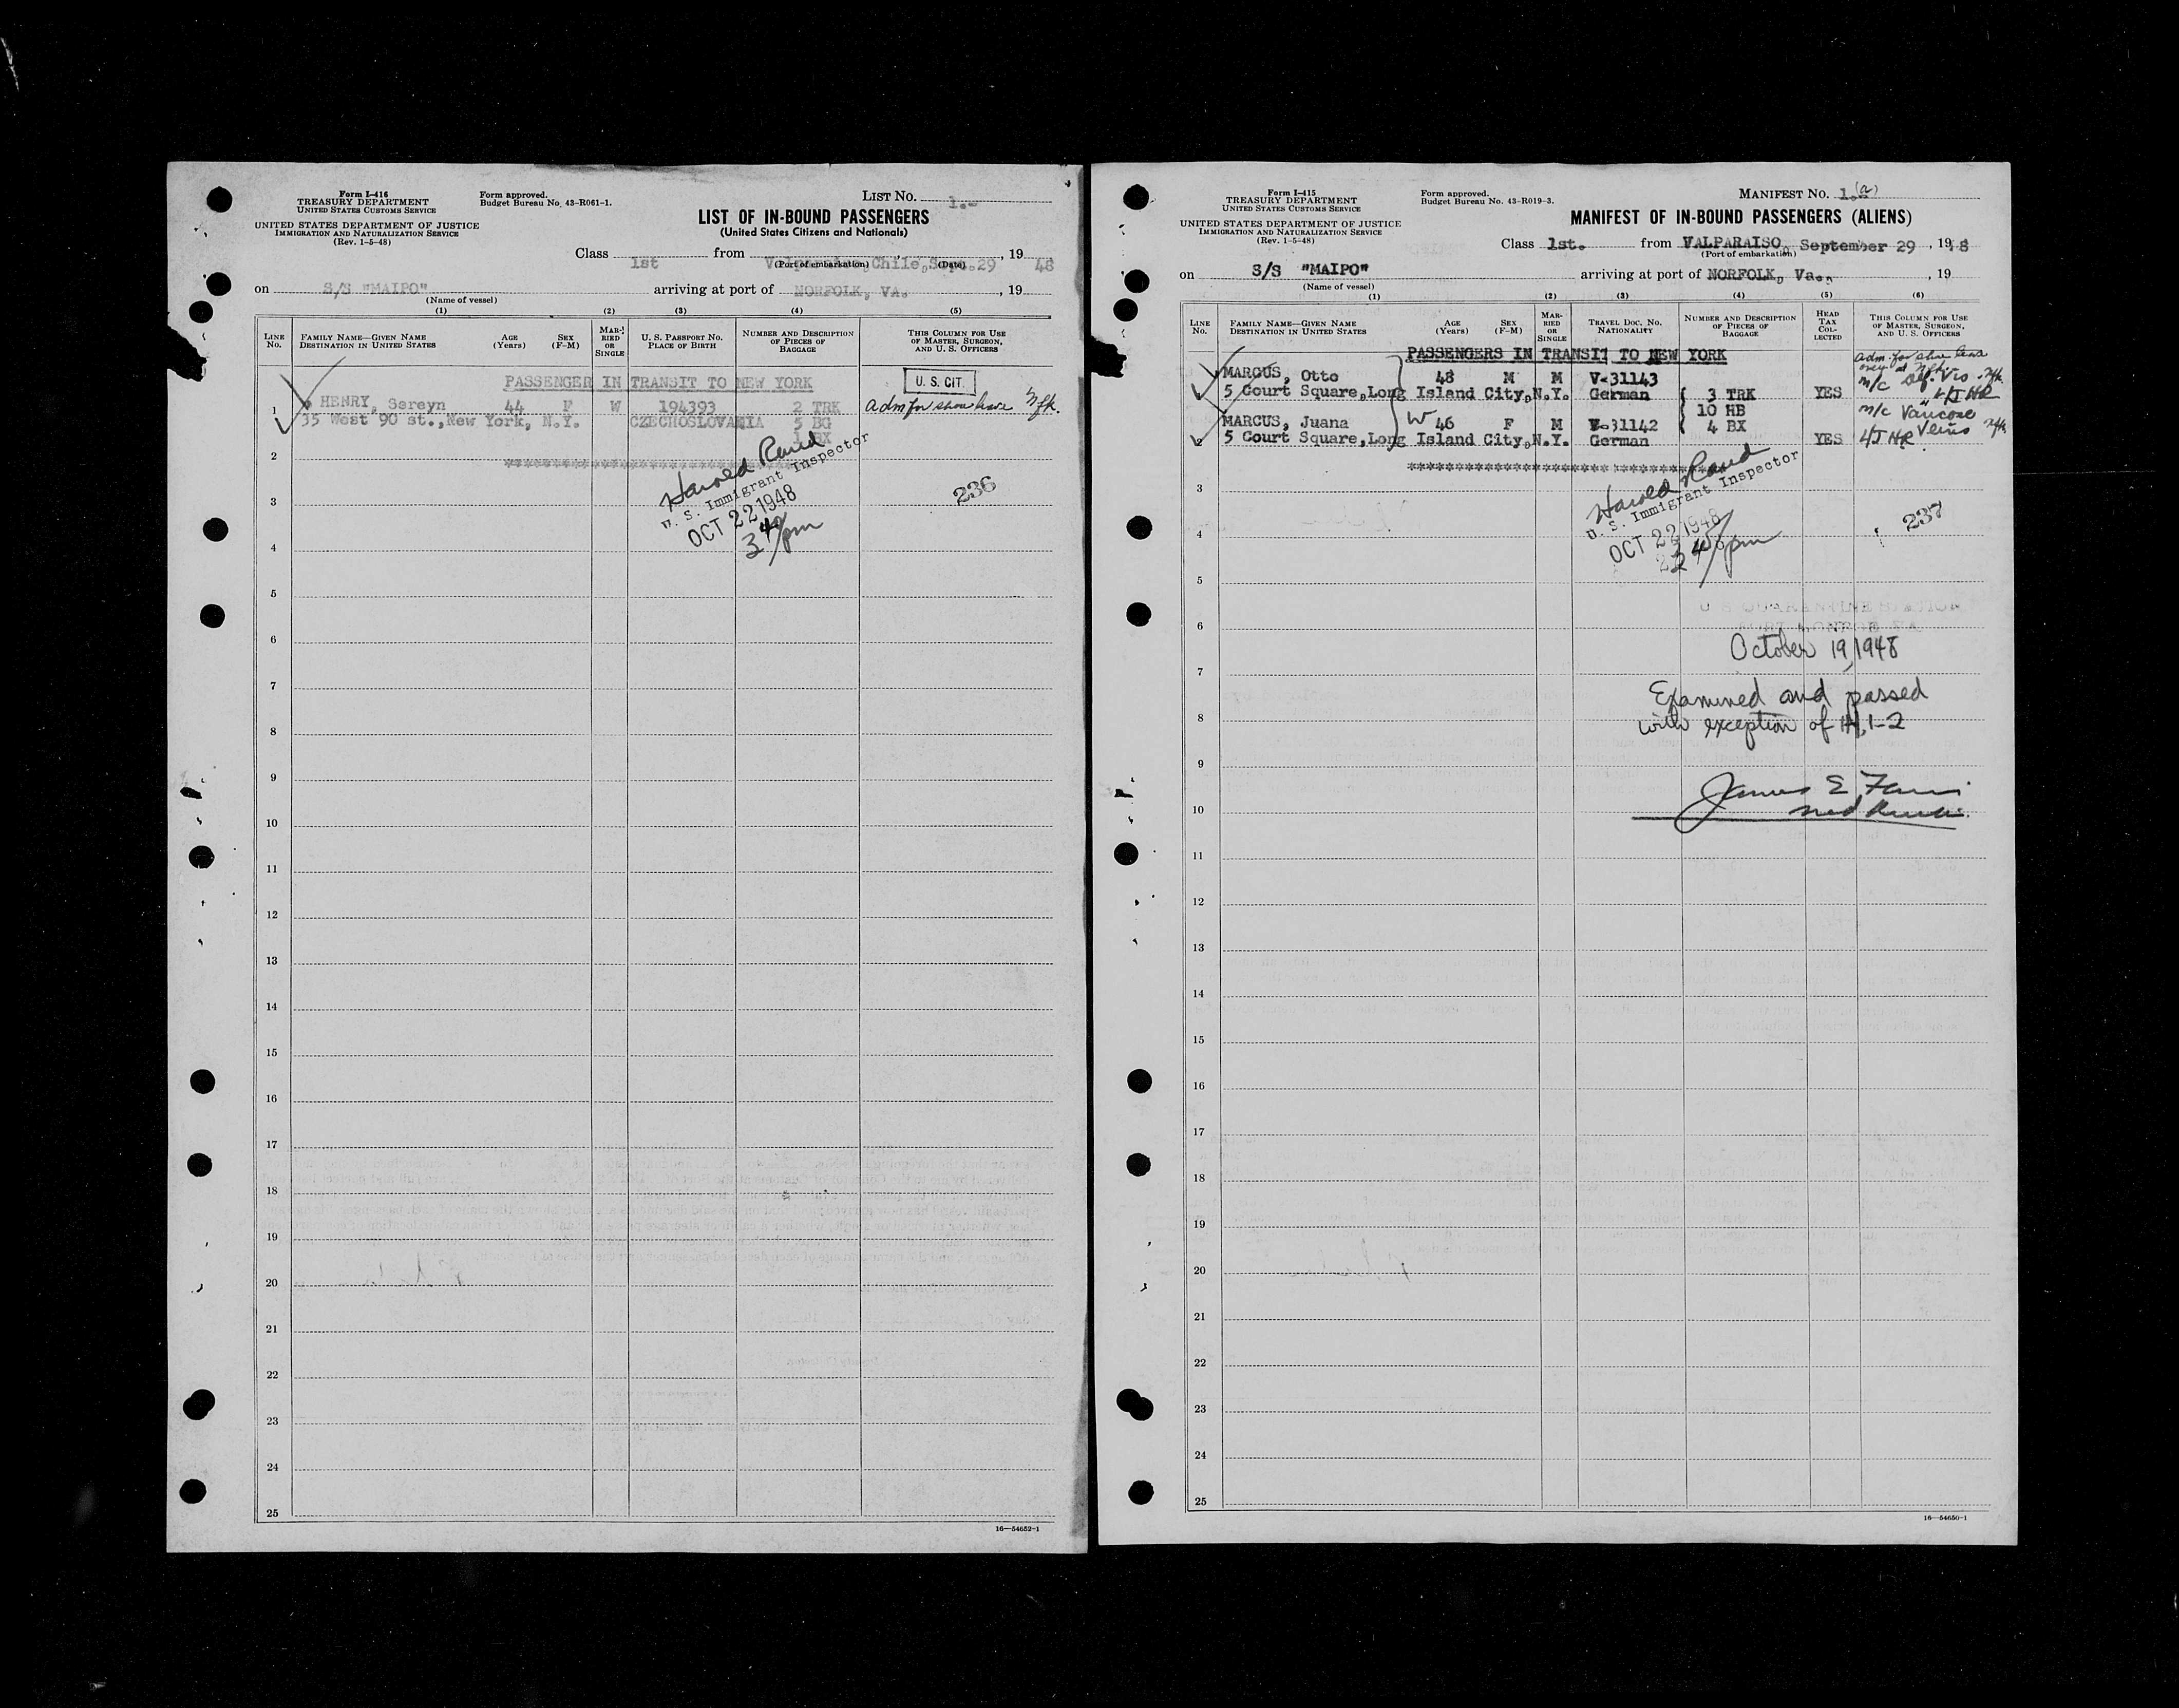 Form I-416
TREASURY DEPARTMENT
UNITED STATES CUSTOMS SERVICE
UNITED STATES DEPARTMENT OF JUSTICE
IMMIGRATION AND NATURALIZATION SERVICE
(Rev. 1-5-48)
Form approved.
Budget Bureau No. 43-R061-1.
LIST NO. 1.
LIST OF IN-BOUND PASSENGERS
(United States Citizens and Nationals)
Class 1st from Valparaiso, Chile, Sept. 29, 19 48
(Port of embarkation) (Date)
on S/S "MAIPO" arriving at port of NORFOLK, VA. , 19
(Name of vessel)
(1) (2) (3) (4) (5)
LINE NO. FAMILY NAME—GIVEN NAME DESTINATION IN UNITED STATES AGE (Years) SEX (F-M) MARRIED OR SINGLE U. S. PASSPORT NO. PLACE OF BIRTH NUMBER AND DESCRIPTION OF PIECES OF BAGGAGE THIS COLUMN FOR USE OF MASTER, SURGEON, AND U. S. OFFICERS
PASSENGER IN TRANSIT TO NEW YORK U. S. CIT.
1 HENRY, Sereyn 44 F W 194393 2 TRK adm for shore leave Nfk.
35 West 90 st., New York, N.Y. CZECHOSLOVAKIA 5 BG
1 BX
2
Harold Rand
U. S. Immigrant Inspector
3 236
OCT 22 1948
3 40/pm
4
5
6
7
8
9
10
11
12
13
14
15
16
17
18
19
20
21
22
23
24
25
16—54652-1
Form I-415
TREASURY DEPARTMENT
UNITED STATES CUSTOMS SERVICE
UNITED STATES DEPARTMENT OF JUSTICE
IMMIGRATION AND NATURALIZATION SERVICE
(Rev. 1-5-48)
Form approved.
Budget Bureau No. 43-R019-3.
MANIFEST NO. 1.(a)
MANIFEST OF IN-BOUND PASSENGERS (ALIENS)
Class 1st. from VALPARAISO, September 29 , 19 48
(Port of embarkation)
on S/S "MAIPO" arriving at port of NORFOLK, Va., , 19
(Name of vessel)
(1) (2) (3) (4) (5) (6)
LINE NO. FAMILY NAME—GIVEN NAME DESTINATION IN UNITED STATES AGE (Years) SEX (F-M) MARRIED OR SINGLE TRAVEL DOC. NO. NATIONALITY NUMBER AND DESCRIPTION OF PIECES OF BAGGAGE HEAD TAX COLLECTED THIS COLUMN FOR USE OF MASTER, SURGEON, AND U. S. OFFICERS
PASSENGERS IN TRANSIT TO NEW YORK
adm. for shore leave
MARCUS, Otto 48 M M V-31143 m/c Def. Vis. Nfk.
5 Court Square, Long Island City, N.Y. German 3 TRK YES
10 HB
MARCUS, Juana W 46 F M V-31142 4 BX m/c Varicose Veins Nfk.
2 5 Court Square, Long Island City, N.Y. German YES
3
Harold Rand
U. S. Immigrant Inspector
4 237
OCT 22 1948
3 40/pm
5
6
October 19, 1948
7
Examined and passed
8
with exception of 1-2
9
James E.
10
11
12
13
14
15
16
17
18
19
20
21
22
23
24
25
16—54650-1